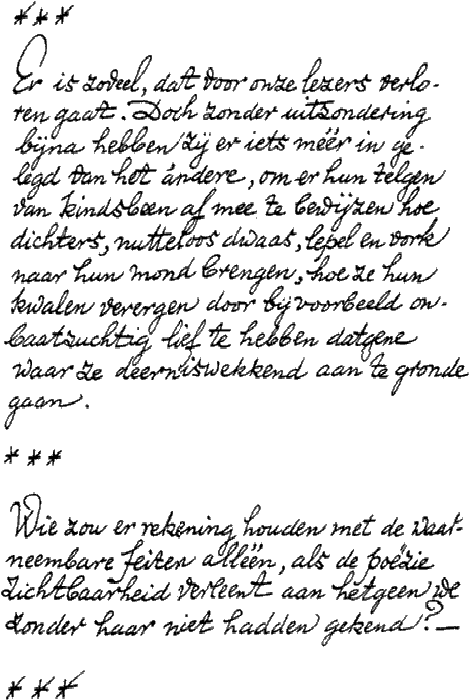 ***
Er is zoveel, dat voor onze lezers verlo-
ren gaat. Doch zonder uitzondering
bijna hebben zij er iets méér in ge-
legd van het ándere, om er hun telgen
van kindsbeen af mee te bewijzen hoe
dichters, nutteloos dwaas, lepel en vork
naar hun mond brengen, hoe ze hun
kwalen verergen door bijvoorbeeld on-
baatzuchtig lief te hebben datgene
waar ze deerniswekkend aan te gronde
gaan.
***
Wie zou er rekening houden met de waar-
neembare feiten alléén, als de poëzie
zichtbaarheid verleent aan hetgeen we
zonder haar niet hadden gekend?—
***